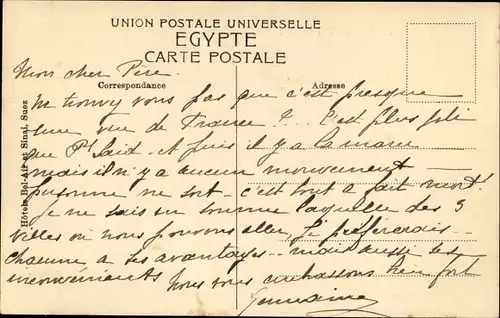 UNION POSTALE UNIVERSELLE
EGYPTE
CARTE POSTALE
Correspondance
Adresse
Hôtels Bel-Air et Sinai, Suez
Mon cher Père.
Ne trouvez vous pas que c'est presque
une vue de France ?... C'est plus joli
que Pt Saïd. Et puis il y a la mer
mais il n'y a aucun mouvement
personne ne sort. c'est tout à fait mort!
Je ne sais en somme laquelle des 3
villes où nous pouvons aller, je préfèrerais
chacune a ses avantages. mais aussi ses
inconvénients Nous vous embrassons bien fort
Germaine